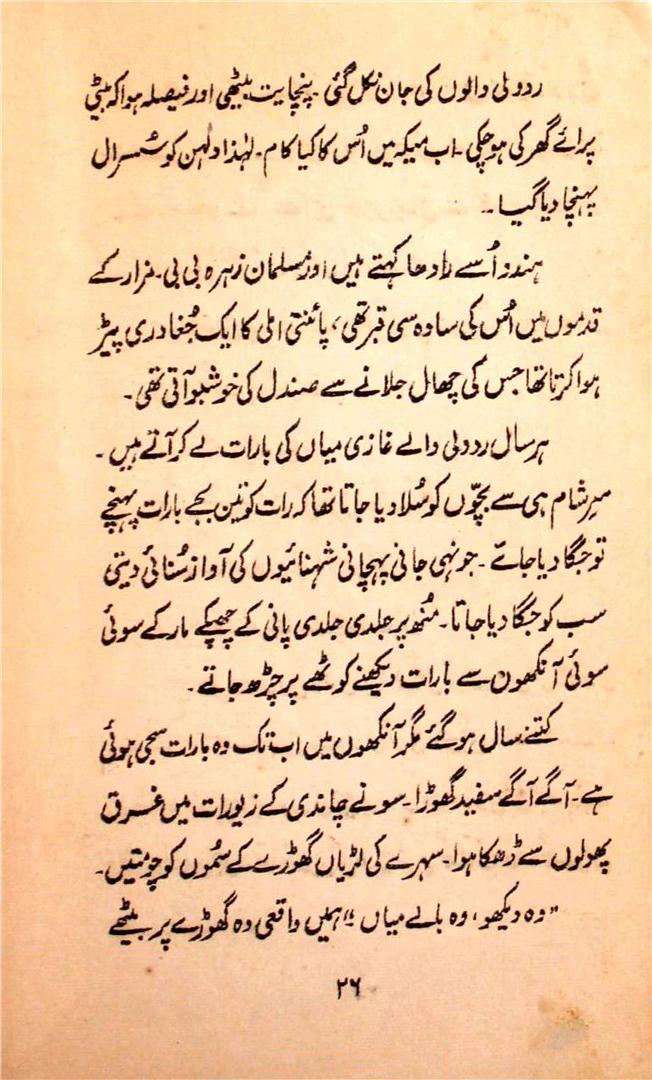 ردولی والوں کی جان نکل گئی ۔ پنچایت بیٹھی اور فیصلہ ہوا کہ بیٹی
پرائے گھر کی ہو چکی ۔ اب میکہ میں اُس کا کیا کام ۔ لہٰذا دلہن کو سُسرال
پہنچا دیا گیا ۔۔
ہندو اُسے رادھا کہتے ہیں اور مسلمان زہرہ بی بی ۔ مزار کے
قدموں میں اُس کی سادہ سی قبر تھی ، پائنتی املی کا ایک جُغادری پیڑ
ہوا کرتا تھا جس کی چھال جلانے سے صندل کی خوشبو آتی تھی ۔
ہر سال ردولی والے غازی میاں کی بارات لے کر آتے ہیں ۔
سرِ شام ہی سے بچّوں کو سُلا دیا جاتا تھا کہ رات کو تین بجے بارات پہنچے
تو جگا دیا جائے ۔ جونہی جانی پہچانی شہنائیوں کی آواز سُنائی دیتی
سب کو جگا دیا جاتا ۔ مُنھ پر جلدی جلدی پانی کے چھپکے مار کے سوئی
سوئی آنکھوں سے بارات دیکھنے کوٹھے پر چڑھ جاتے ۔
کتنے سال ہو گئے مگر آنکھوں میں اب تک وہ بارات سجی ہوئی
ہے ۔ آگے آگے سفید گھوڑا ۔ سونے چاندی کے زیورات میں غرق
پھولوں سے ڈھکا ہوا ۔ سہرے کی لڑیاں گھوڑے کے سُموں کو چومتیں ۔
"وہ دیکھو ، وہ بالے میاں !" ہمیں واقعی وہ گھوڑے پر بیٹھے
۲۶